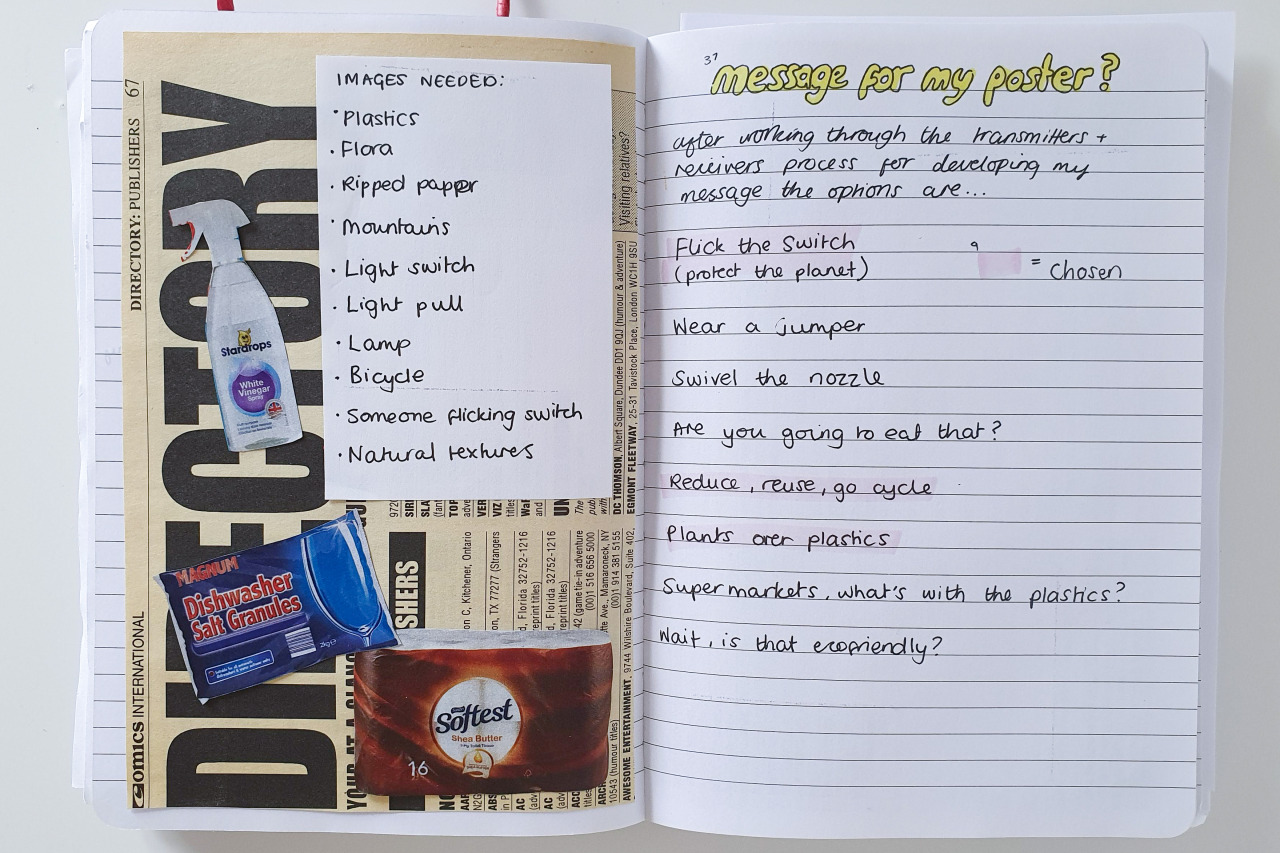 67
DIRECTORY: PUBLISHERS
Comics INTERNATIONAL
DIRECTORY
IMAGES NEEDED:
· Plastics
· Flora
· Ripped papper
· Mountains
· Light switch
· Light pull
· Lamp
· Bicycle
· Someone flicking switch
· Natural textures
Stardrops
White
Vinegar
Spray
MAGNUM
Dishwasher
Salt Granules
2kg e
Softest
Shea Butter
16
Visiting relatives?
DC THOMSON, Albert Square, Dundee DD1 9QJ (humour & adventure)
EGMONT FLEETWAY, 25-31 Tavistock Place, London WC1H 9SU
SHERS
on C, Kitchener, Ontario
on, TX 77277 (Strangers
d, Florida 32752-1216
reprint titles)
d, Florida 32752-1216
reprint titles)
42 (game tie-in adventure
(00)1 516 656 5000
tte Ave., Mamaroneck, NY
(00)1 914 381 5155
AWESOME ENTERTAINMENT, 9744 Wilshire Boulevard, Suite 402,
10543 (humour titles)
37
message for my poster?
after working through the transmitters +
receivers process for developing my
message the options are...
Flick the Switch
(protect the planet)
= Chosen
Wear a jumper
Swivel the nozzle
Are you going to eat that?
Reduce, reuse, go cycle
Plants over plastics
Supermarkets, what's with the plastics?
Wait, is that ecofriendly?